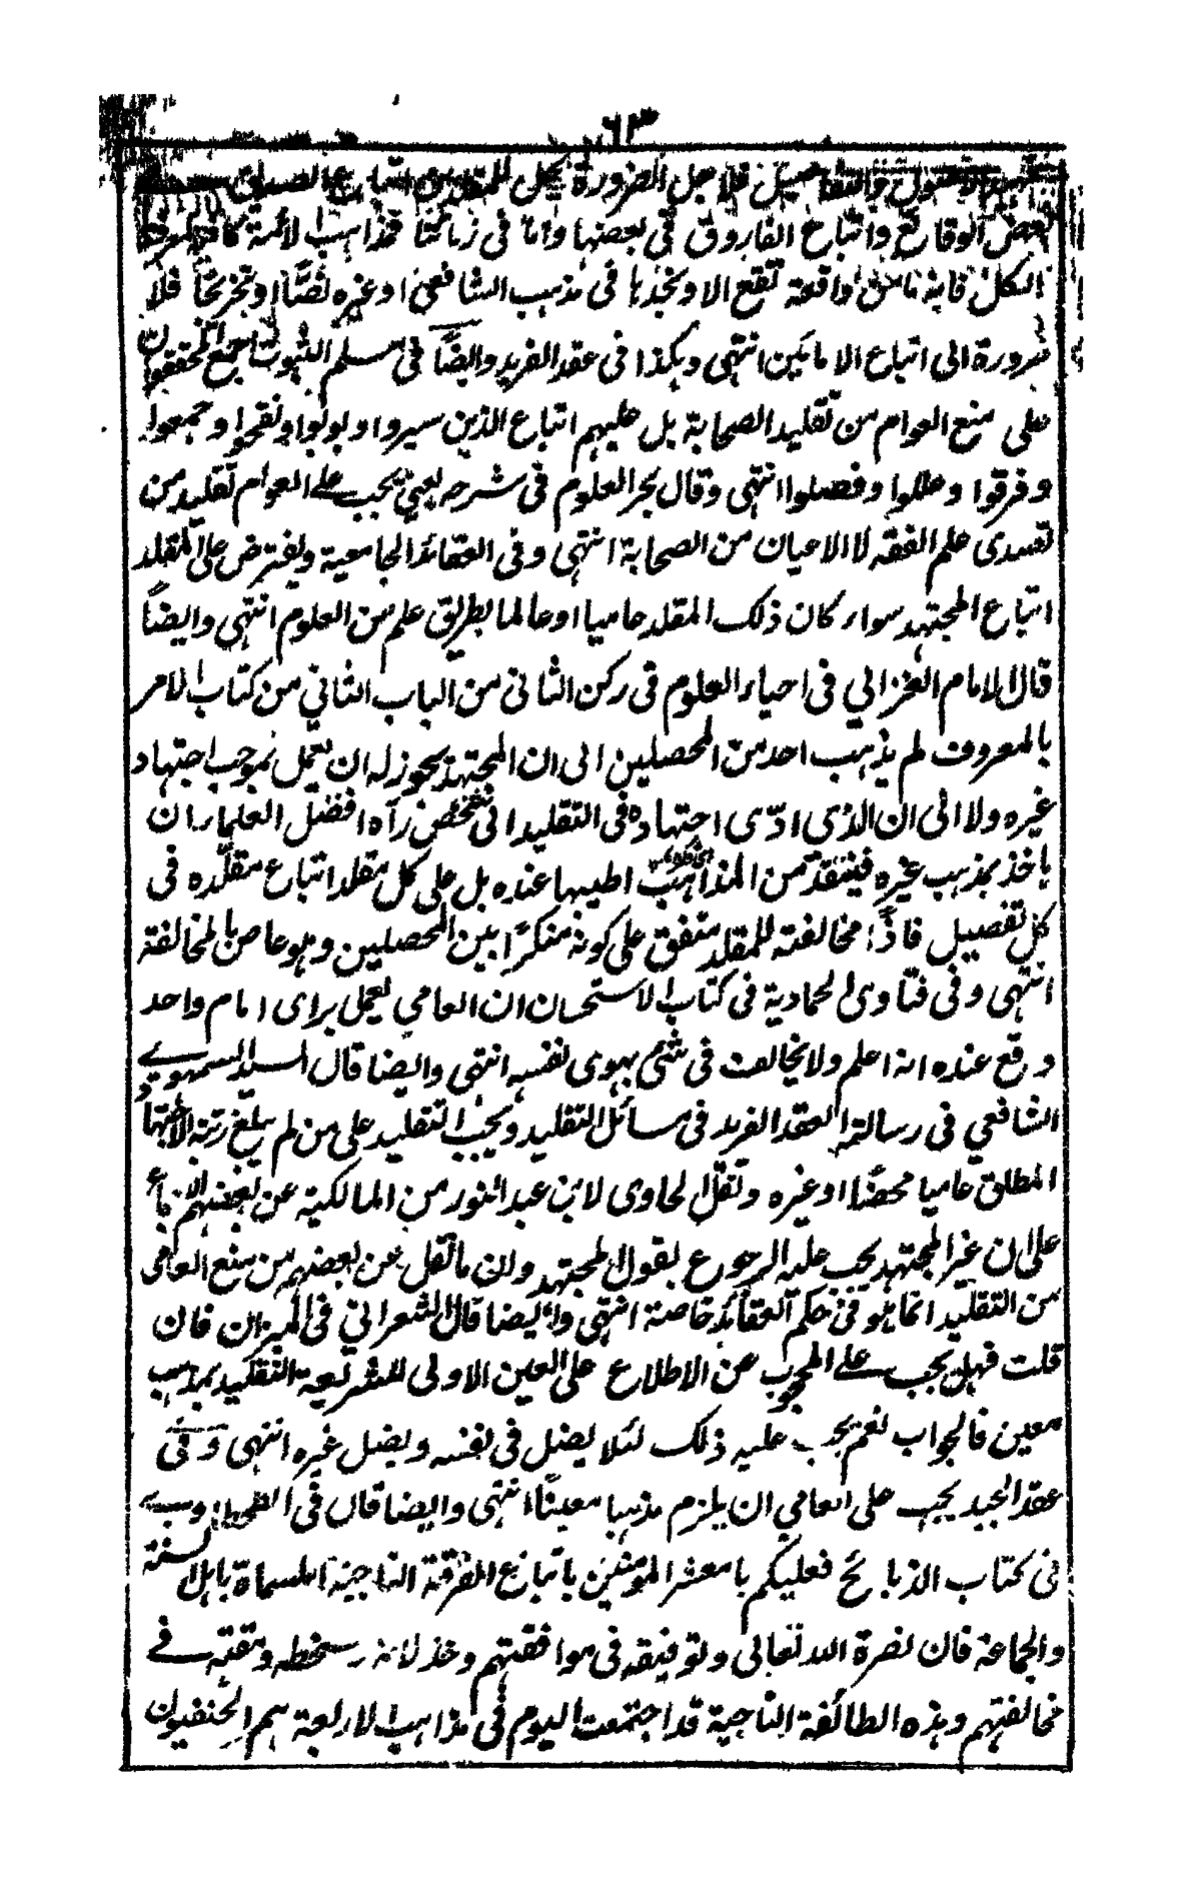 ٦٣
والتفاصيل فلاجل الضرورة يحل للمقلدين اتباع الصديق
بعض الوقائع واتباع الفاروق فى بعضها واما فى زماننا فمذاهب الائمة كافية
الكل فانه ما من واقعة تقع الا ويخذها فى مذهب الشافعى او غيره نصًّا او تخريجًا فلا
ضرورة الى اتباع الامامين انتهى وهكذا فى عقد الفريد وايضًا فى مسلم الثبوت اجمع المحققون
على منع العوام من تقليد الصحابة بل عليهم اتباع الذين سيروا وبوبوا ونقحوا وجمعوا
وفرقوا وعللوا وفصلوا انتهى وقال بحر العلوم فى شرحه يعنى يجب على العوام تقليد من
تصدى علم الفقه لا الاعيان من الصحابة انتهى وفى العقائد الجامعية ويفترض على المقلد
اتباع المجتهد سواء كان ذلك المقلد عاميا او عالما بطريق علم من العلوم انتهى وايضًا
قال الامام الغزالي فى احياء العلوم فى ركن الثانى من الباب الثاني من كتاب الامر
بالمعروف لم يذهب احد من المحصلين الى ان المجتهد يجوز له ان يعمل بموجب اجتهاد
غيره ولا الى ان الذى ادّى اجتهاده فى التقليد الى شخص رآه افضل العلماء ان
ياخذ بمذهب غيره فينتقد من المذاهب اطيبها عنده بل على كل مقلد اتباع مقلَّده فى
كل تفصيل فاذًا مخالفته للمقلد متفق على كونه منكرًا بين المحصلين وهو عاص بالمخالفة
انتهى وفى فتاوى الحمادية فى كتاب الاستحسان ان العامي يعمل براى امام واحد
وقع عنده انه اعلم ولا يخالفت فى شئ بهوى نفسه انتهى وايضا قال السيد السمهودى
الشافعي فى رسالته العقد الفريد فى مسائل التقليد ويجب التقليد على من لم يبلغ رتبة الاجتهاد
المطلق عاميا محضًا او غيره ونقل الحاوى لابن عبد النور من المالكية عن بعضهم الاجماع
على ان غير المجتهد يجب عليه الرجوع لقول المجتهد وان ما نقل عن بعضهم من منع العامى
من التقليد انما هو فى حكم العقائد خاصة انتهى وايضا قال الشعراني فى الميزان فان
قلت فهل يجب على المحجوب عن الاطلاع على العين الاولى للشريعة التقليد بمذهب
معين فالجواب نعم يجب عليه ذلك لئلا يضل فى نفسه ويضل غيره انتهى وفى
عقد الجيد يجب على العامي ان يلزم مذهبا معينًا انتهى وايضا قال فى الطحطاوى
فى كتاب الذبائح فعليكم يا معشر المؤمنين باتباع الفرقة الناجية المسماة باهل السنة
والجماعة فان نصرة الله تعالى وتوفيقه فى موافقتهم وخذلانه وسخطه ومقته فے
مخالفتهم وهذه الطائفة الناجية قد اجتمعت اليوم فى مذاهب الاربعة هم الحنفيون